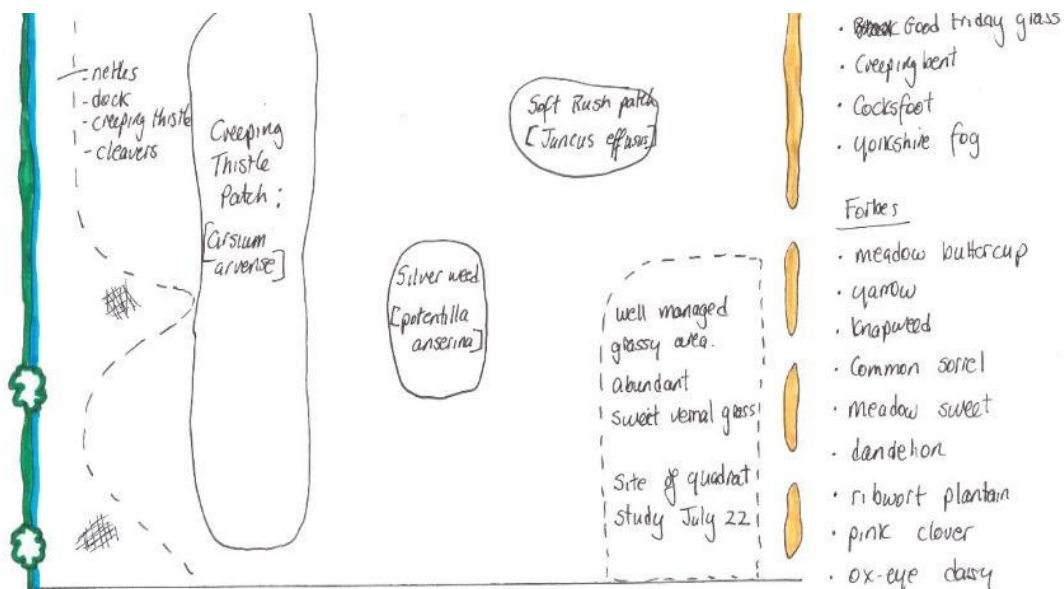 - nettles
- dock
- creeping thistle
- cleavers
Creeping
Thistle
Patch :
[Cirsium
arvense]
Soft Rush patch
[Juncus effusus]
Silver weed
[potentilla
anserina]
well managed
grassy area.
abundant
sweet vernal grass
Site of quadrat
study July 22
· Good Friday grass
· Creeping bent
· Cocksfoot
· Yorkshire fog
Forbes
· meadow buttercup
· yarrow
· Knapweed
· Common sorrel
· meadow sweet
· dandelion
· ribwort plantain
· pink clover
· ox-eye daisy